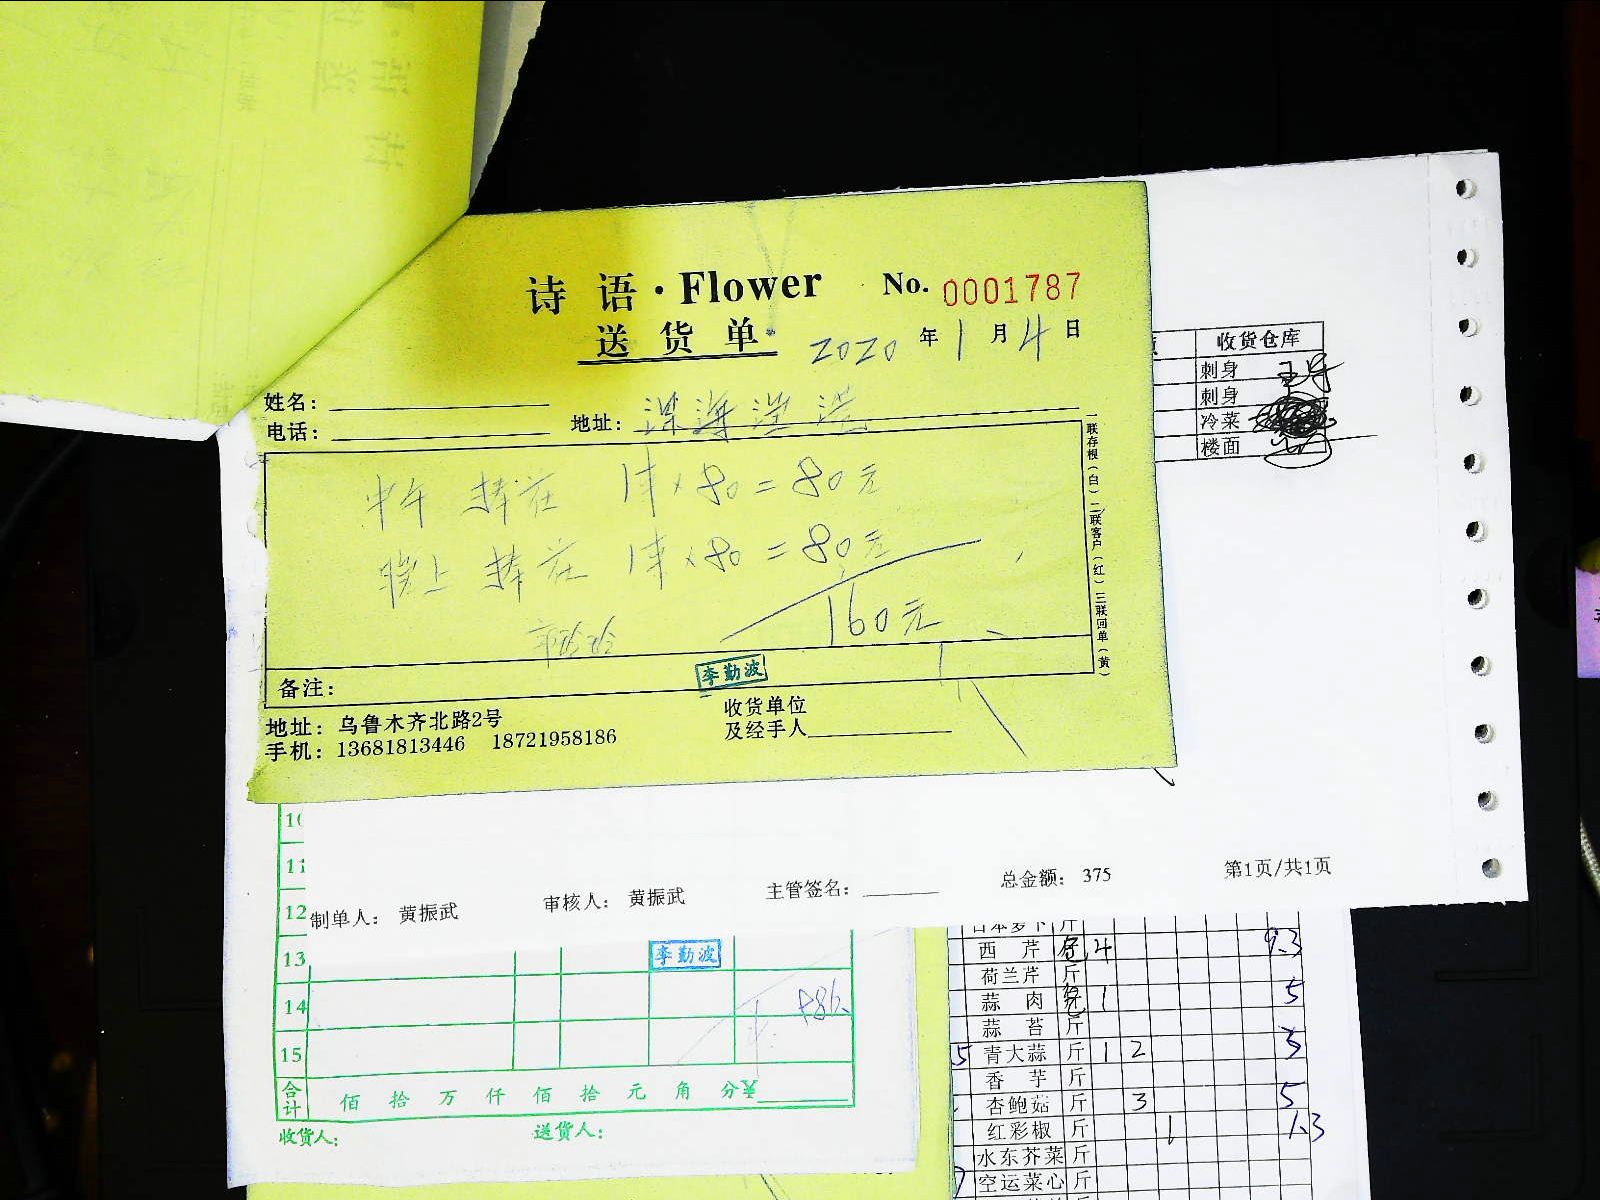 诗语·Flower No. 0001787
送货单 2020年1月4日
姓名：
电话： 地址：深海
中午 捧花 1束×80=80元
晚上 捧花 1束×80=80元
160元
李勤波
备注：
地址：乌鲁木齐北路2号
手机：13681813446 18721958186
收货单位
及经手人
一联存根（白）二联客户（红）三联回单（黄）
收货仓库
刺身
刺身
冷菜
楼面
制单人：黄振武 审核人：黄振武 主管签名： 总金额：375 第1页/共1页
11
12
13 李勤波
14
15
合计 佰 拾 万 仟 佰 拾 元 角 分¥
收货人： 送货人：
西芹 4 9.3
荷兰芹 斤
蒜肉 1 5
蒜苔 斤
5 青大蒜 斤 1 2 3
香芋 斤
杏鲍菇 斤 3 5
红彩椒 斤 1 1.3
水东芥菜 斤
空运菜心 斤